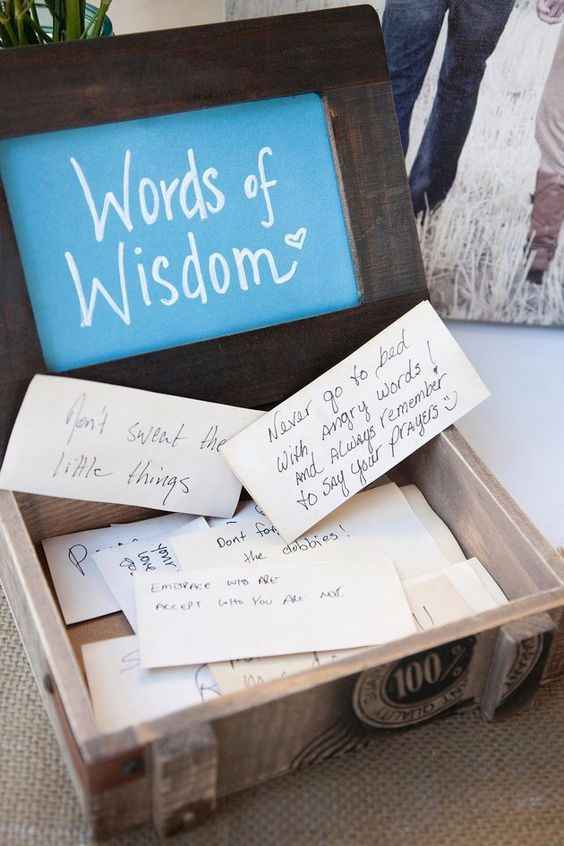 Words of
Wisdom
Never go to bed
with angry words!
and always remember
to say your prayers
Don't sweat the
little things
Dont for
the dobbies!
love your
EMBRACE WHO ARE
ACCEPT WHO YOU ARE NOT.
100%
QUALITY